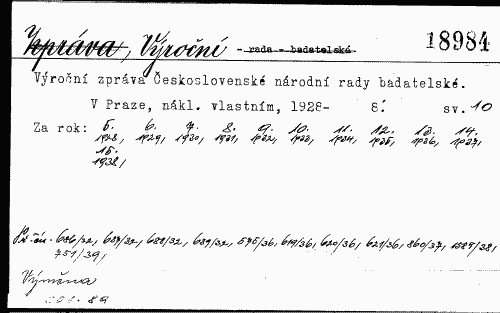 Zpráva, Výroční - rada - badatelská 18984
Výroční zpráva Československé národní rady badatelské.
V Praze, nákl. vlastním, 1928- 8°. sv. 10
Za rok: 5. 6. 7. 8. 9. 10. 11. 12. 13. 14.
1928, 1929, 1930, 1931, 1932, 1933, 1934, 1935, 1936, 1937,
15.
1938,
686/32, 687/32, 688/32, 689/32, 575/36, 619/36, 620/36, 621/36, 860/37, 1585/38,
751/39,
Výměna